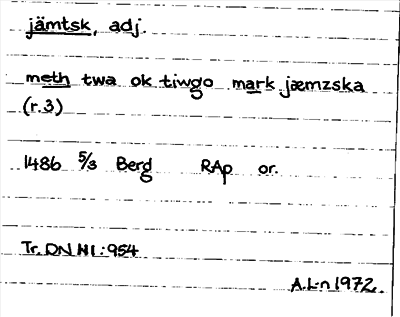 jämtsk, adj.
meth twa ok tiwgo mark jæmzska
(r.3)
1486 5/3 Berg RAp or.
Tr. DN :954
A.L:n 1972.